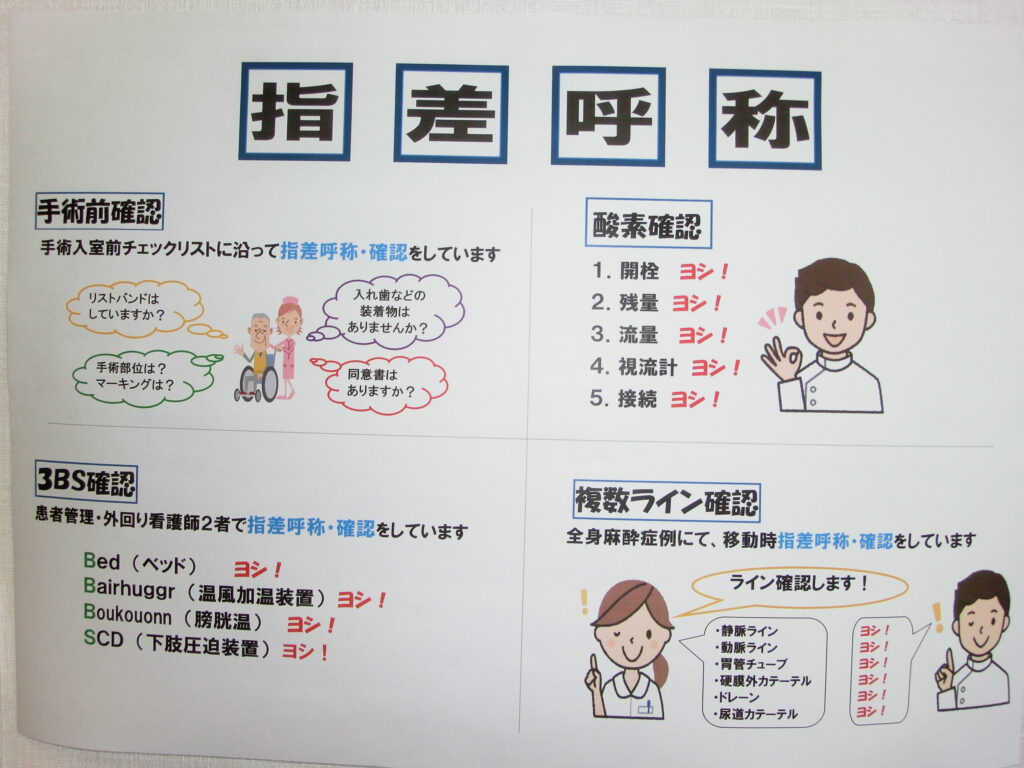 指差呼称
手術前確認
手術入室前チェックリストに沿って指差呼称・確認をしています
リストバンドは
していますか?
入れ歯などの
装着物は
ありませんか?
手術部位は?
マーキングは?
同意書は
ありますか?
酸素確認
1. 開栓 ヨシ!
2. 残量 ヨシ!
3. 流量 ヨシ!
4. 視流計 ヨシ!
5. 接続 ヨシ!
3BS確認
患者管理・外回り看護師2者で指差呼称・確認をしています
Bed(ベッド) ヨシ!
Bairhuggr(温風加温装置)ヨシ!
Boukouonn(膀胱温) ヨシ!
SCD(下肢圧迫装置)ヨシ!
複数ライン確認
全身麻酔症例にて、移動時指差呼称・確認をしています
ライン確認します!
・静脈ライン ヨシ!
・動脈ライン ヨシ!
・胃管チューブ ヨシ!
・硬膜外カテーテル ヨシ!
・ドレーン ヨシ!
・尿道カテーテル ヨシ!